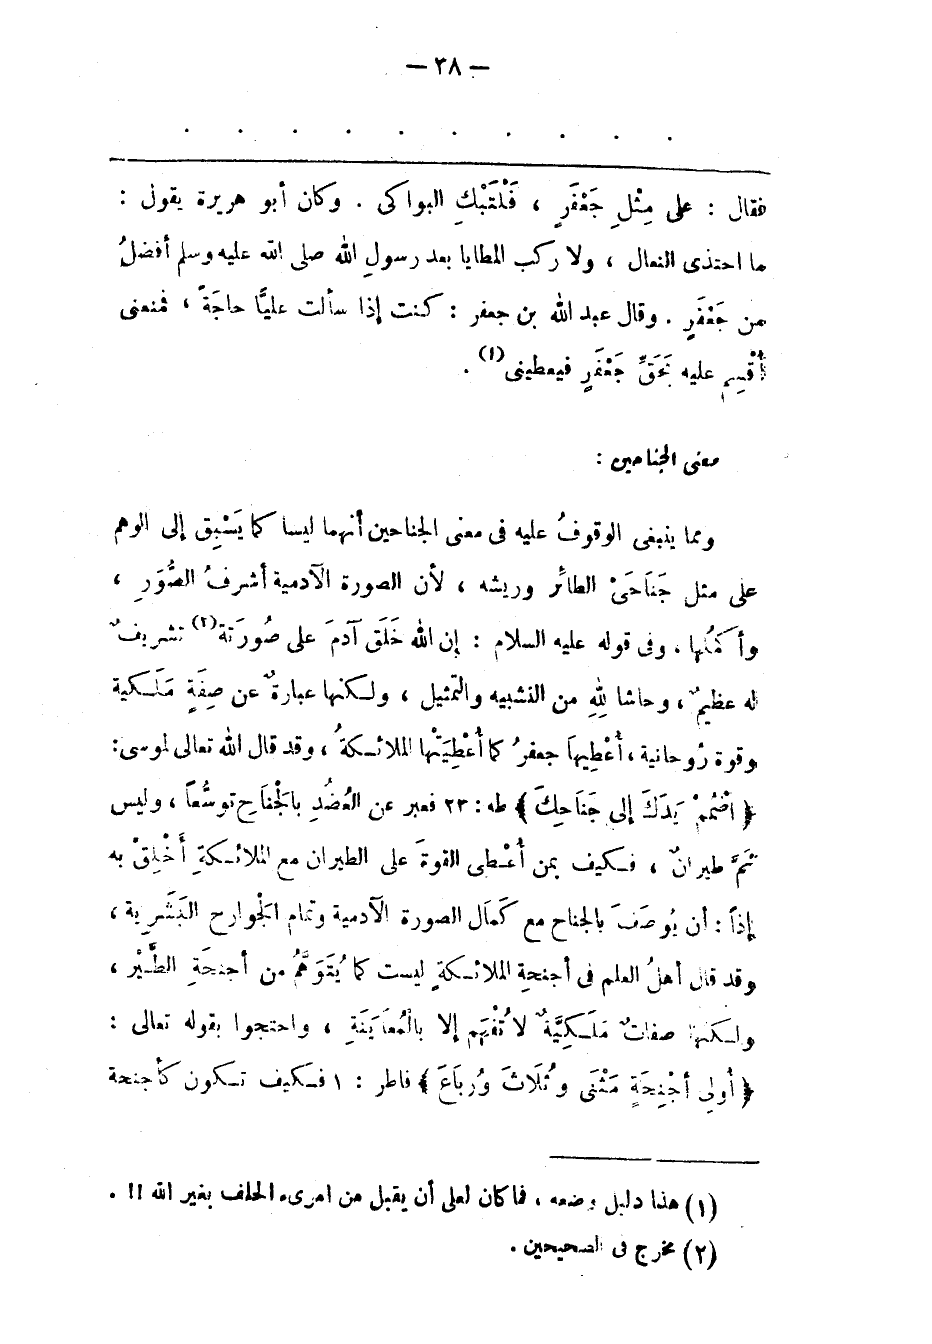 — ٣٨ —
. . . . . . . . . .
فقال : على مِثْلِ جَعْفَرٍ ، فَلْتَبْكِ البواكى . وكان أبو هريرة يقول :
ما احتذى النعال ، ولا ركب المطايا بعد رسولِ الله صلى الله عليه وسلم أفضلُ
من جَعْفَرٍ . وقال عبد الله بن جعفر : كنت إذا سألت عليًّا حاجَةً ، فمنعنى
أُقْسِم عليه بَحَقِّ جَعْفَرٍ فيعطينى (١) .
معنى الجناحين :
ومما ينبغى الوقوفُ عليه فى معنى الجناحين أنهما ليسا كما يَسْبِق إلى الوهم
على مثل جَنَاحَىْ الطائر وريشه ، لأن الصورة الآدمية أشرفُ الصُّوَرِ ،
وأكمَلُها . وفى قوله عليه السلام : إن الله خَلَق آدمَ على صُورَتة (٢) تشريفٌ
له عظيمٌ ، وحاشا لِلهِ من التشبيه والتمثيل ، ولكنها عبارةٌ عن صِفَةٍ مَلَكية
وقوة رُوحانية ، أُعْطِيهاَ جعفرُ كما أُعْطِيَتْها الملائكةُ ، وقد قال الله تعالى لموسى:
﴿ اضْمُمْ يَدَكَ إلى جَنَاحِكَ ﴾ طه : ٢٣ فعبر عن العُضُدِ بالجْنَاحِ توسُّعاً ، وليس
ثَمَّ طيرانٌ ، فكيف بمن أُعْطى القوةَ على الطيران مع الملائكةِ أخْلِقْ به
إذاً : أن يُوصَفَ بالجناح مع كَمَال الصورة الآدمية وتمام الجْوارح البَشَرِية ،
وقد قال أهلُ العلم فى أجنحةِ الملائكةٍ ليست كما يُتَوَهَّمُ من أجنحَةِ الطَّيْر ،
ولكنها صفاتٌ مَلَكِيَّةٌ لا تُفْهَم إلا بالمُعاَيَنَةِ ، واحتجوا بقوله تعالى :
﴿ أُولِى أجْنِحَةٍ مَثْنَى وثُلَاثَ ورُباَعَ ﴾ فاطر : ١ فكيف تكون كأجنحة
(١) هذا دليل وضعه ، فما كان لعلى أن يقبل من امرىء الحلف بغير الله !! .
(٢) مخرج فى الصحيحين .